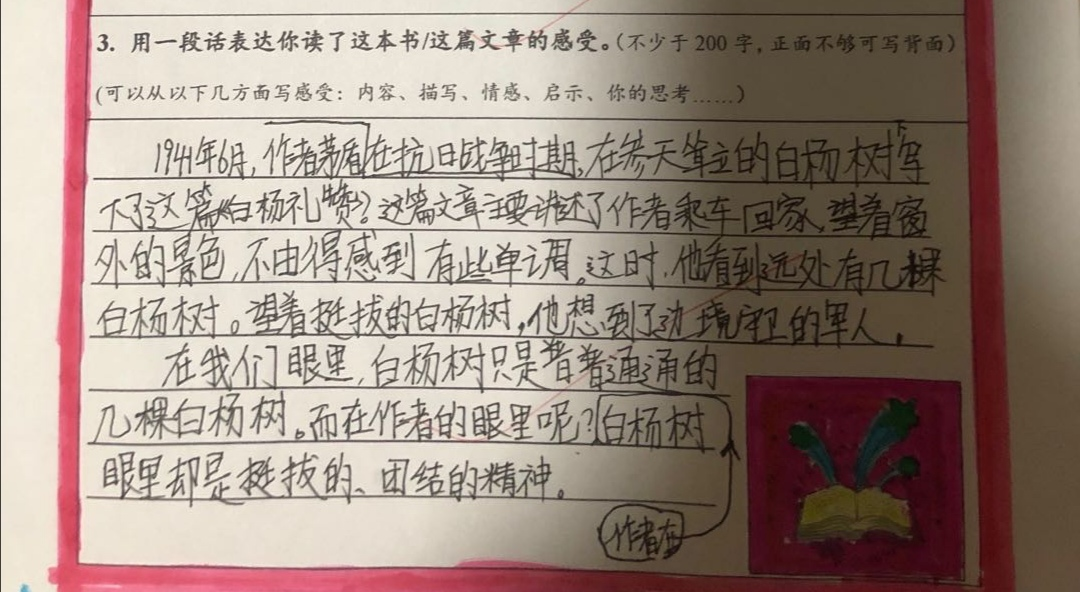 3. 用一段话表达你读了这本书/这篇文章的感受。(不少于 200 字，正面不够可写背面)
(可以从以下几方面写感受：内容、描写、情感、启示、你的思考……)
1941年6月，作者茅盾在抗日战争时期，在参天耸立的白杨树下写
下了这篇《白杨礼赞》？这篇文章主要讲述了作者乘车回家，望着窗
外的景色，不由得感到有些单调。这时，他看到远处有几棵
白杨树。望着挺拔的白杨树，他想到了边境守卫的军人。
在我们眼里，白杨树只是普普通通的
几棵白杨树。而在作者的眼里呢？白杨树
眼里却是挺拔的、团结的精神。
作者在